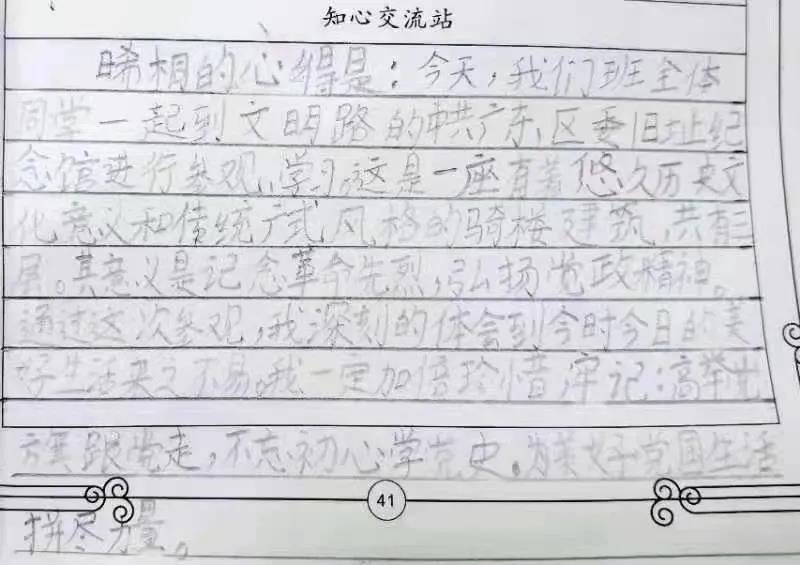 知心交流站
晞相的心得是：今天，我们班全体
同学一起到文明路的中共广东区委旧址纪
念馆进行参观、学习。这是一座有着悠久历史文
化意义和传统广式风格的骑楼建筑，共有三
层。其意义是记念革命先烈，弘扬党政精神。
通过这次参观，我深刻的体会到今时今日的美
好生活来之不易。我一定加倍珍惜牢记：高举
旗跟党走，不忘初心学党史。为美好党国生活
拼尽力量。
41